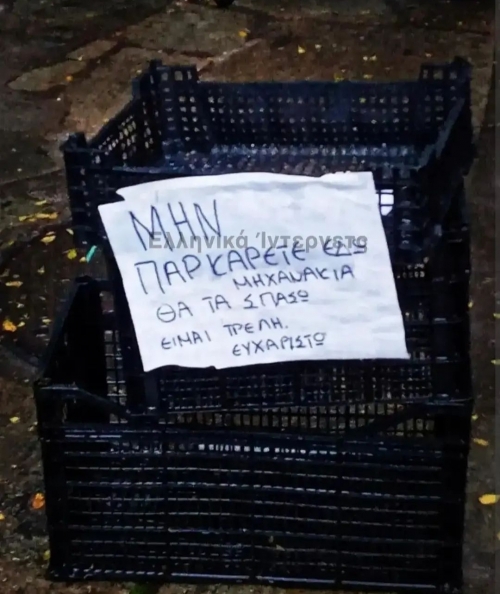 ΜΗΝ
Ελληνικά Ίντερνετς
ΠΑΡΚΑΡΕΤΕ ΕΔΩ
ΜΗΧΑΝΑΚΙΑ
ΘΑ ΤΑ ΣΠΑΣΩ
ΕΙΜΑΙ ΤΡΕΛΗ.
ΕΥΧΑΡΙΣΤΩ